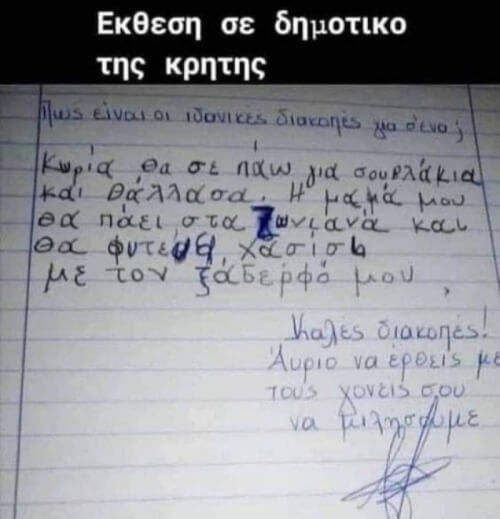 Εκθεση σε δημοτικο
της κρητης
Πως είναι οι ιδανικές διακοπές για σένα;
Κωρία θα σε πάω για σουρλάκια
και θάλλασα. Η μαμά μου
θα πάει στα Ζωνιανά και
θα φυτεψει χασίσι
με τον ξάδερφό μου,
Καλές διακοπές!
Αύριο να έρθεις με
τους γονείς σου
να μιλήσουμε